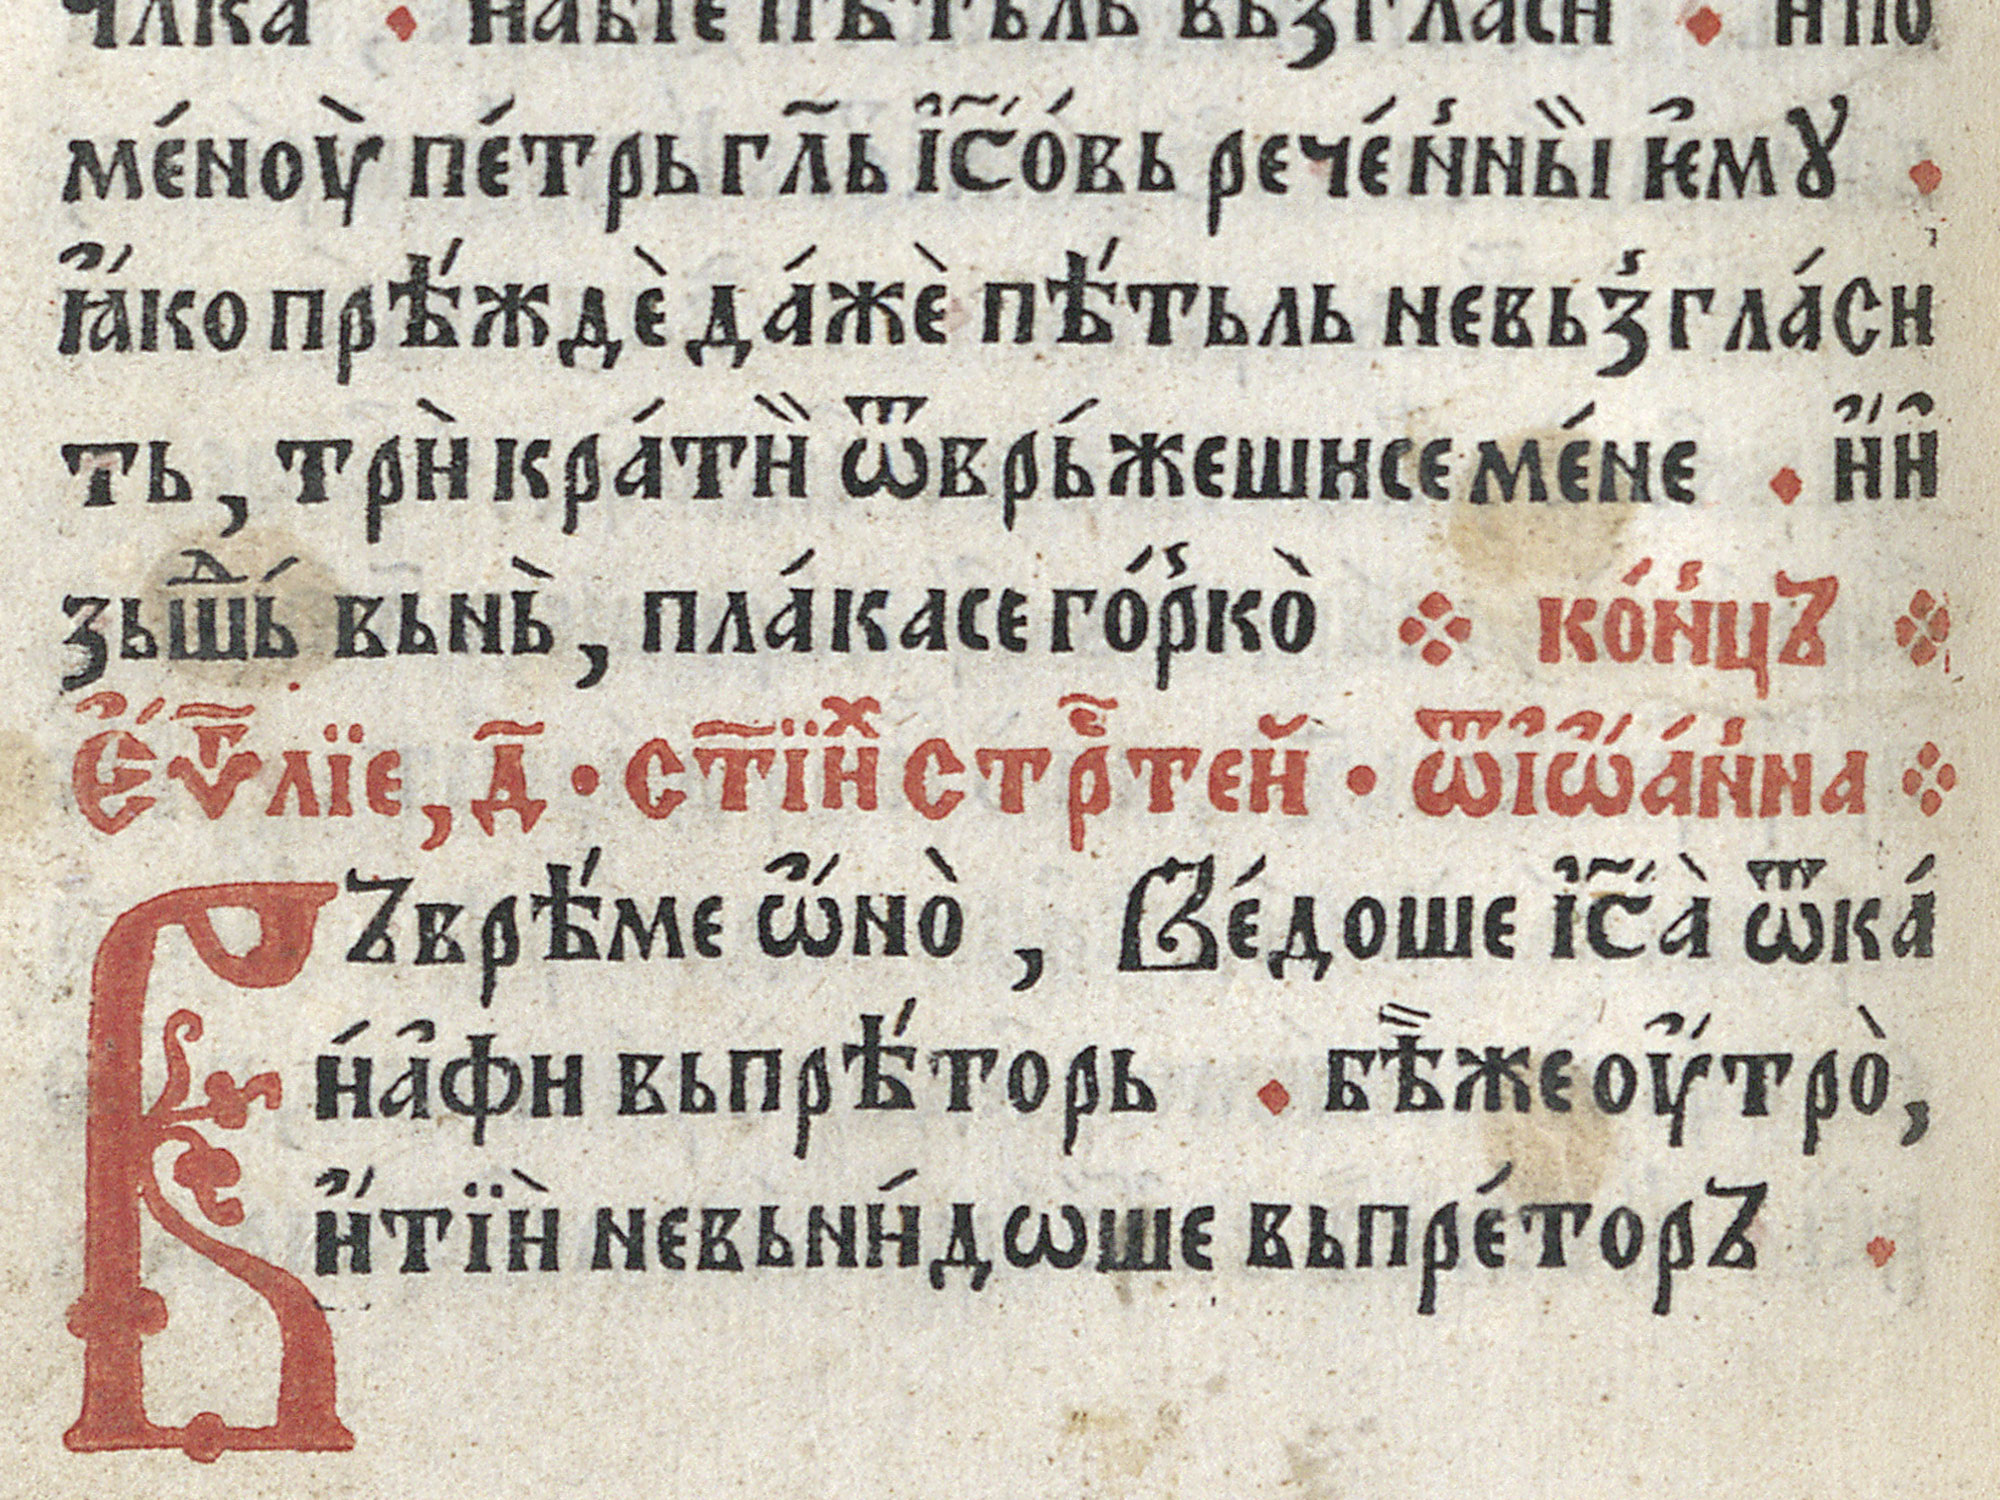 чл҃ка · набїе пѣтѣль вьзгласи · ипо
ме́ноꙋ̀ пе́трь гл҃ь і҆с҃о́вь рече́н̾ны̏и ѥ҆мꙋ ·
ꙗ҆́ко прѣ́ждѐ да́жѐ пѣ́тьль невьз̾гла́си
ть, трѝ кра́тѝ ѿврь́жешисе ме́не · и҆́и҆
зьшⷣь́ вьнь̀, пла́касе го́р̾ко̀ ⁘ ко́н̾цꙋ ⁘
е҆́ѵ҃лїе, д҃ · ст҃їиⷯ стрⷭ҇тей · ѿ і҆ѡ҆а́н̾на ⁘
Въ врѣ́ме ѡ҆́но̀, Ве́доше і҆с҃а̀ ѿ ка
и́а҆фи вь прѣ́торь · бѣ̏же оу҆́тро̀,
и҆́тїѝ невьни́дѡше вь пре́торъ ·